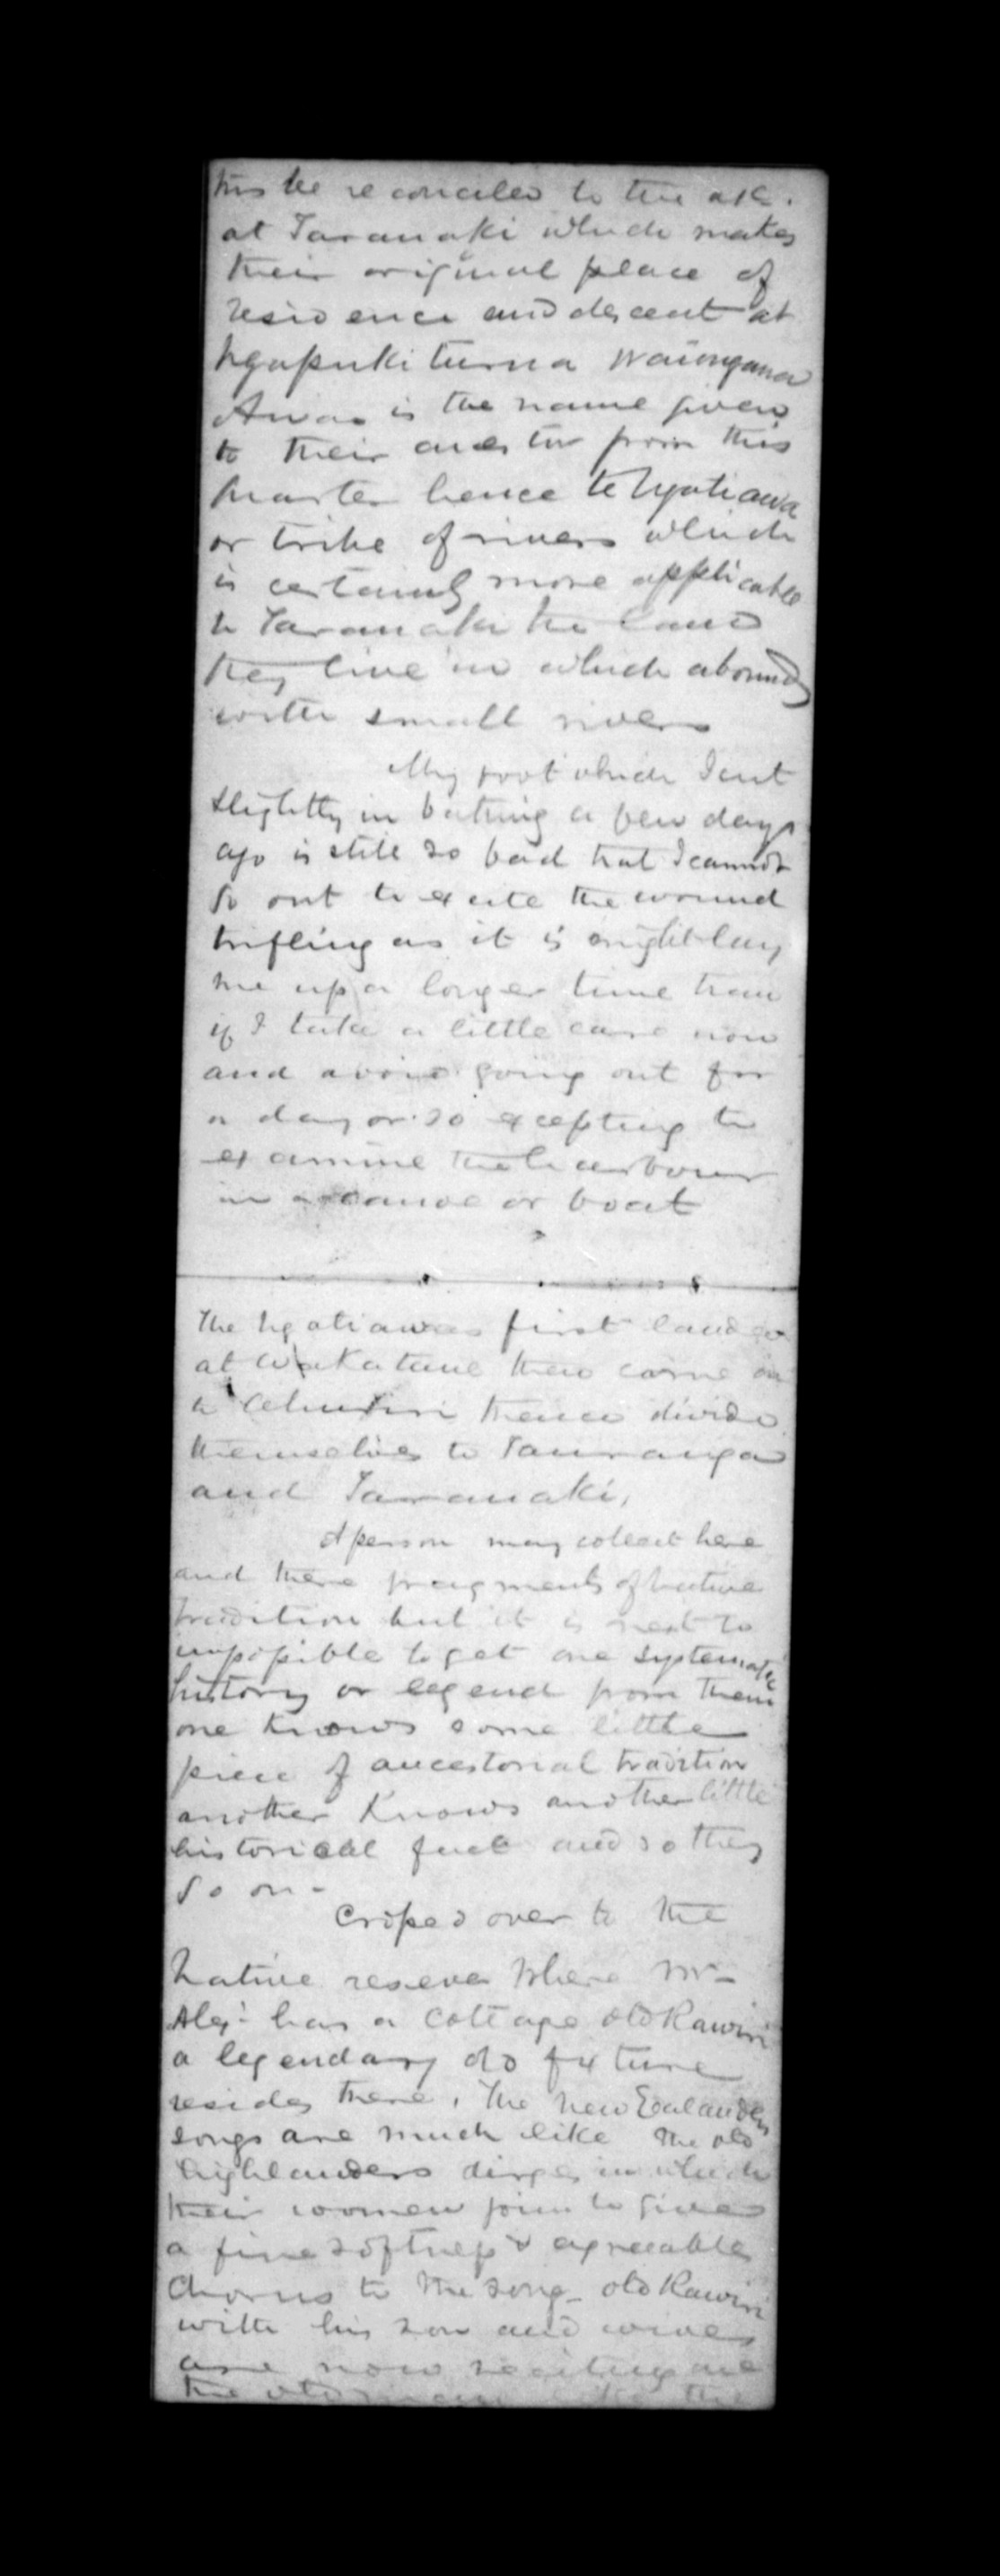 this be reconciled to the a/c.
at Taranaki which makes
their original place of
residence and descent at
Ngapukiturua Waiongana
Awa is the name given
to their ancestor from this
quarter hence te Ngatiawa
or tribe of rivers which
is certainly more applicable
to Taranaki the land
they live in which abounds
with small rivers
My foot which I cut
slightly in bathing a few days
ago is still so bad that I cannot
go out to excite the wound
trifling as it is might lay
me up a longer time than
if I take a little care now
and avoid going out for
a day or so excepting to
examine the harbour
in a canoe or boat
The Ngatiawas first landed
at Wakatane then came on
to Ahuriri thence divide
themselves to Tauranga
and Taranaki,
A person may collect here
and there fragments of native
tradition but it is next to
impossible to get one systematic
history or legend from them
one knows some little
piece of ancestorial tradition
another knows another little
historical fact and so they
go on -
Crossed over to the
native reserve where Mr
has a cottage old Rawiri
a legendary old fixture
resides there. The New Zealanders
songs are much like the old
highlanders dirges in which
their women join to give
a fine softness & agreeable
chorus to the song - old Rawiri
with his son and wives
are now reciting one
the old man the